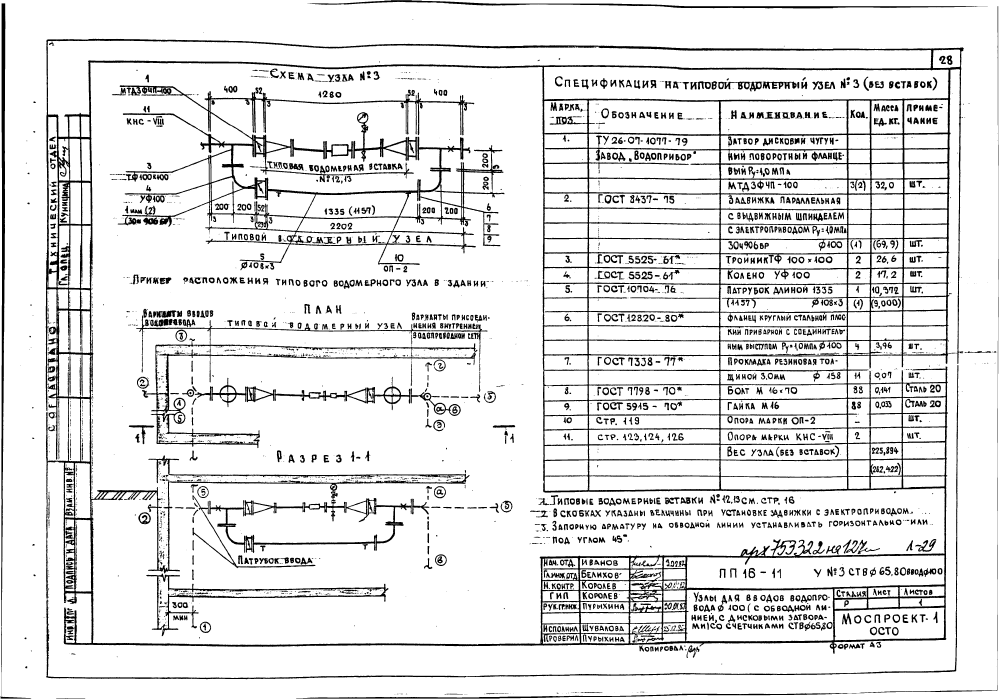 28
СХЕМА УЗЛА №3
1
МТДЗФЧП-100
11
КНС-VIII
400
52
1280
52
400
3
ТФ100х100
4
УФ100
1 или (2)
(30ч906бр)
ТИПОВАЯ ВОДОМЕРНАЯ ВСТАВКА
№12,13
200
200
200
200
52
(230)
1335 (1157)
200
200
2202
6
7
8
9
ТИПОВОЙ ВОДОМЕРНЫЙ УЗЕЛ
5
Ø108х3
10
ОП-2
ПРИМЕР РАСПОЛОЖЕНИЯ ТИПОВОГО ВОДОМЕРНОГО УЗЛА В ЗДАНИИ
ПЛАН
ВАРИАНТЫ ВВОДОВ
ВОДОПРОВОДА
ТИПОВОЙ ВОДОМЕРНЫЙ УЗЕЛ
ВАРИАНТЫ ПРИСОЕДИ-
НЕНИЯ ВНУТРЕННЕЙ
ВОДОПРОВОДНОЙ СЕТИ
1
1
РАЗРЕЗ 1-1
ПАТРУБОК ВВОДА
300
МИН
СПЕЦИФИКАЦИЯ НА ТИПОВОЙ ВОДОМЕРНЫЙ УЗЕЛ №3 (БЕЗ ВСТАВОК)
МАРКА, ПОЗ. ОБОЗНАЧЕНИЕ НАИМЕНОВАНИЕ КОЛ. МАССА ЕД. КГ. ПРИМЕЧАНИЕ
1. ТУ 26-07-1077-79 ЗАТВОР ДИСКОВЫЙ ЧУГУН-
ЗАВОД „ВОДОПРИБОР" НЫЙ ПОВОРОТНЫЙ ФЛАНЦЕ-
ВЫЙ Ру=1,0 МПа
МТДЗФЧП-100 3(2) 32,0 ШТ.
2. ГОСТ 8437-75 ЗАДВИЖКА ПАРАЛЛЕЛЬНАЯ
С ВЫДВИЖНЫМ ШПИНДЕЛЕМ
С ЭЛЕКТРОПРИВОДОМ Ру=1,0МПа
30ч906бр Ø100 (1) (69,9) ШТ.
3. ГОСТ 5525-61* ТРОЙНИК ТФ 100х100 2 26,6 ШТ.
4. ГОСТ 5525-61* КОЛЕНО УФ 100 2 17,2 ШТ.
5. ГОСТ 10704-76 ПАТРУБОК ДЛИНОЙ 1335 1 10,372 ШТ.
(1157) Ø108х3 (1) (9,000)
6. ГОСТ 12820-80* ФЛАНЕЦ КРУГЛЫЙ СТАЛЬНОЙ ПЛОС-
КИЙ ПРИВАРНОЙ С СОЕДИНИТЕЛЬ-
НЫМ ВЫСТУПОМ Ру=1,0МПа Ø100 4 3,96 ШТ.
7. ГОСТ 7338-77* ПРОКЛАДКА РЕЗИНОВАЯ ТОЛ-
ЩИНОЙ 3,0мм Ø 158 11 0,07 ШТ.
8. ГОСТ 7798-70* БОЛТ М 16х70 88 0,141 СТАЛЬ 20
9. ГОСТ 5915-70* ГАЙКА М16 88 0,033 СТАЛЬ 20
10 СТР. 119 ОПОРА МАРКИ ОП-2 – ШТ.
11. СТР. 123,124,126 ОПОРА МАРКИ КНС-VIII 2 ШТ.
ВЕС УЗЛА (БЕЗ ВСТАВОК) 225,894
(262,422)
1. ТИПОВЫЕ ВОДОМЕРНЫЕ ВСТАВКИ №12,13 СМ. СТР. 16
2. В СКОБКАХ УКАЗАНЫ ВЕЛИЧИНЫ ПРИ УСТАНОВКЕ ЗАДВИЖКИ С ЭЛЕКТРОПРИВОДОМ.
3. ЗАПОРНУЮ АРМАТУРУ НА ОБВОДНОЙ ЛИНИИ УСТАНАВЛИВАТЬ ГОРИЗОНТАЛЬНО ИЛИ
ПОД УГЛОМ 45°.
арх 753322 на 127л Л-29
НАЧ. ОТД. ИВАНОВ
ГЛ.ИНЖ.ОТД БЕЛИХОВ
Н.КОНТР. КОРОЛЕВ
ГИП КОРОЛЕВ
РУК.ГР.ИНЖ. ПУРЫХИНА
ИСПОЛНИЛ ШУВАЛОВА
ПРОВЕРИЛ ПУРЫХИНА
ПП 16-11 У №3 СТВ Ø 65.80 ВВОД Ø100
УЗЛЫ ДЛЯ ВВОДОВ ВОДОПРО-
ВОДА Ø 100 (С ОБВОДНОЙ ЛИ-
НИЕЙ, С ДИСКОВЫМИ ЗАТВОРА-
МИ) СО СЧЕТЧИКАМИ СТВ Ø65,80
СТАДИЯ ЛИСТ ЛИСТОВ
Р 1
МОСПРОЕКТ-1
ОСТО
КОПИРОВАЛ:
ФОРМАТ А3
СОГЛАСОВАНО
ТЕХНИЧЕСКИЙ ОТДЕЛ
ГЛ. СПЕЦ. КУНИЦИНА
ВЗАМ. ИНВ. №
ПОДПИСЬ И ДАТА